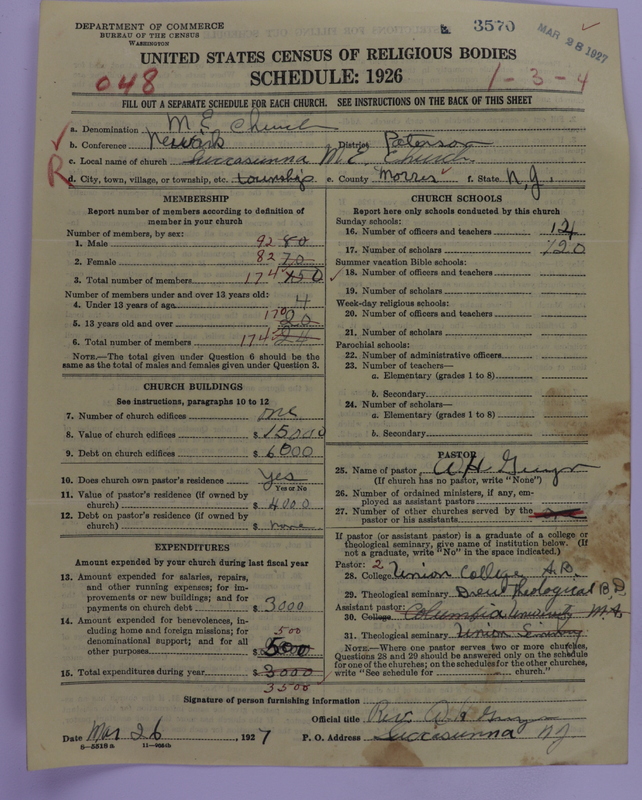 DEPARTMENT OF COMMERCE
BUREAU OF THE CENSUS
WASHINGTON
3570
MAR 28 1927
UNITED STATES CENSUS OF RELIGIOUS BODIES
SCHEDULE: 1926
048
1-3-4
FILL OUT A SEPARATE SCHEDULE FOR EACH CHURCH. SEE INSTRUCTIONS ON THE BACK OF THIS SHEET
a. Denomination M. E. Church
b. Conference Newark District Paterson
c. Local name of church Succasunna M. E. Church
R
d. City, town, village, or township, etc. township e. County Morris f. State N.J.
MEMBERSHIP
Report number of members according to definition of member in your church
Number of members, by sex:
1. Male 92 80
2. Female 82 70
3. Total number of members 174 150
Number of members under and over 13 years old:
4. Under 13 years of age 4
5. 13 years old and over 170 20
6. Total number of members 174 24
NOTE.—The total given under Question 6 should be the same as the total of males and females given under Question 3.
CHURCH BUILDINGS
See instructions, paragraphs 10 to 12
7. Number of church edifices one
8. Value of church edifices $ 15000
9. Debt on church edifices $ 6000
10. Does church own pastor's residence yes
Yes or No
11. Value of pastor's residence (if owned by church) $ 4000
12. Debt on pastor's residence (if owned by church) $ none
EXPENDITURES
Amount expended by your church during last fiscal year
13. Amount expended for salaries, repairs, and other running expenses; for improvements or new buildings; and for payments on church debt $ 3000
14. Amount expended for benevolences, including home and foreign missions; for denominational support; and for all other purposes $ 500 500
15. Total expenditures during year $ 3000
3500
CHURCH SCHOOLS
Report here only schools conducted by this church
Sunday schools:
16. Number of officers and teachers 12
17. Number of scholars 120
Summer vacation Bible schools:
18. Number of officers and teachers
19. Number of scholars
Week-day religious schools:
20. Number of officers and teachers
21. Number of scholars
Parochial schools:
22. Number of administrative officers
23. Number of teachers—
a. Elementary (grades 1 to 8)
b. Secondary
24. Number of scholars—
a. Elementary (grades 1 to 8)
b. Secondary
PASTOR
25. Name of pastor
(If church has no pastor, write "None")
26. Number of ordained ministers, if any, employed as assistant pastors
27. Number of other churches served by the pastor or his assistants
If pastor (or assistant pastor) is a graduate of a college or theological seminary, give name of institution below. (If not a graduate, write "No" in the space indicated.)
Pastor: 2
28. College Union College A.B.
29. Theological seminary Drew Theological B.D.
Assistant pastor:
30. College Columbia University M.A.
31. Theological seminary Union Seminary
NOTE.—Where one pastor serves two or more churches, Questions 28 and 29 should be answered only on the schedule for one of the churches; on the schedules for the other churches, write "See schedule for church."
Signature of person furnishing information
Official title Rev.
Date Mar 26, 1927 P. O. Address Succasunna NJ
8-5518a